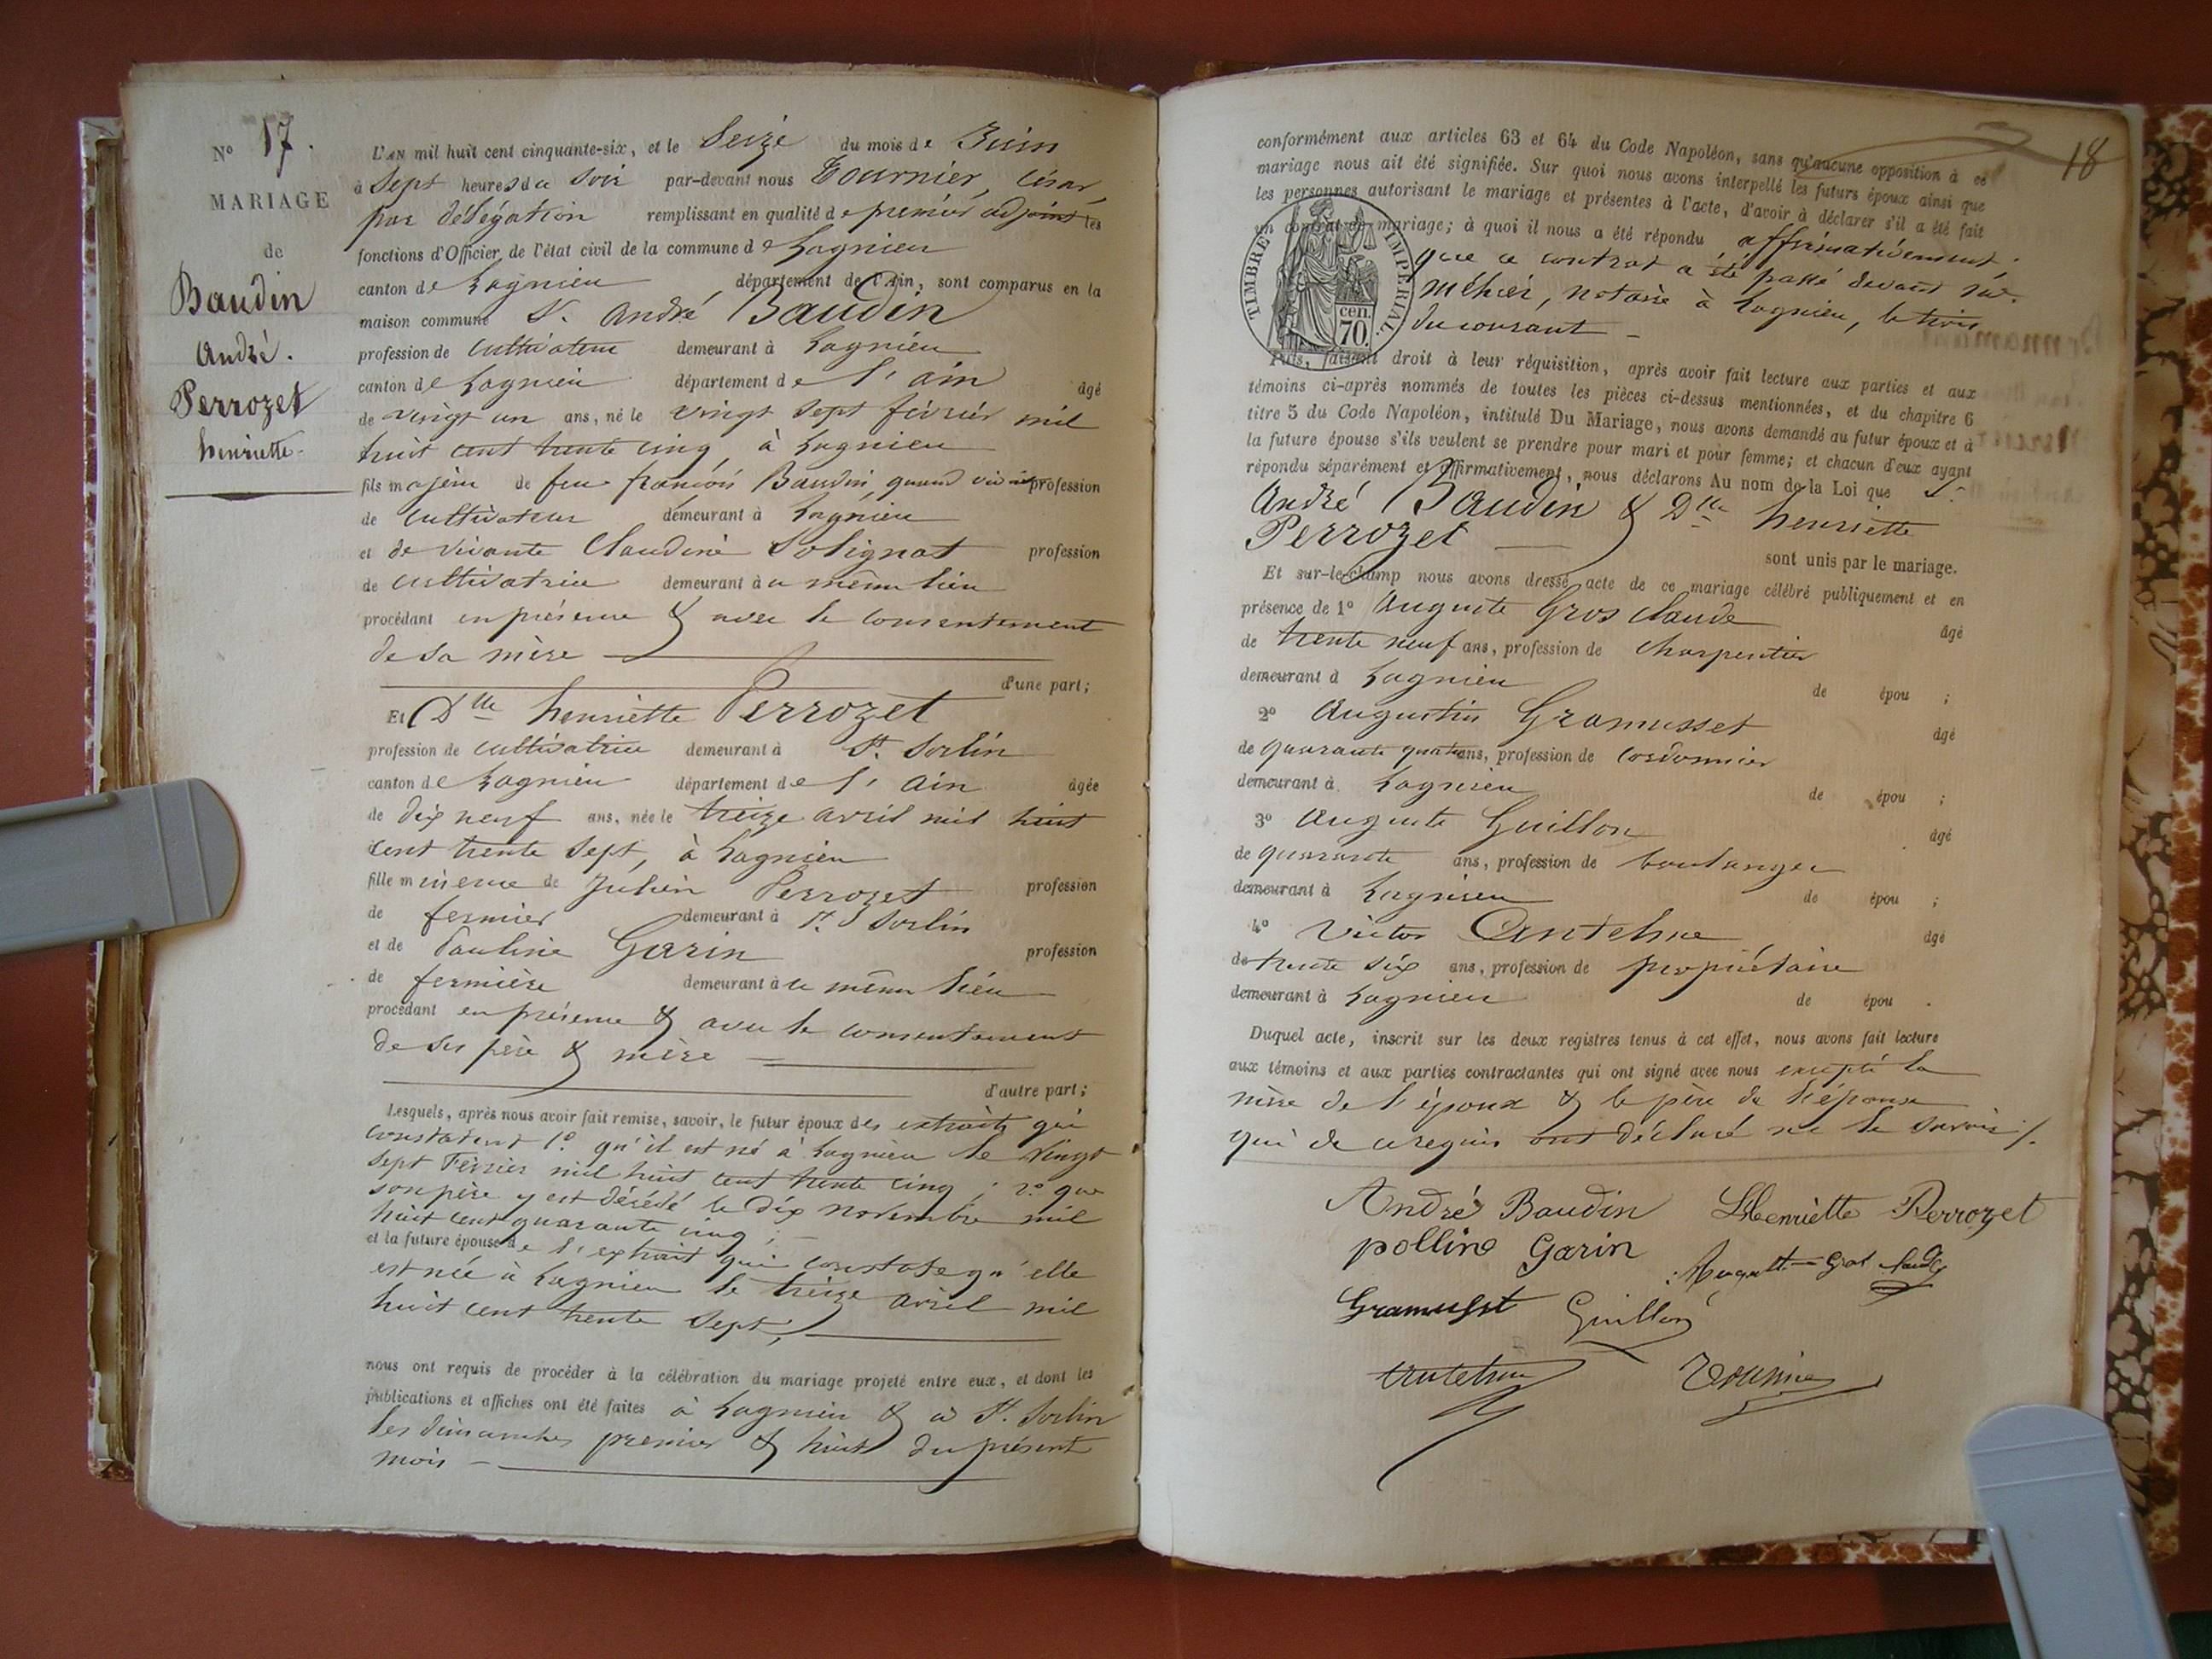 N° 17.
MARIAGE
de
Baudin
André.
Perrozet
henriette.
L'AN mil huit cent cinquante-six, et le Seize du mois de Juin
à Sept heures du Soir par-devant nous Tournier, César
par délégation remplissant en qualité de premier adjoint les
fonctions d'Officier de l'état civil de la commune de Lagnieu
canton de Lagnieu département de l'Ain, sont comparus en la
maison commune S. André Baudin
profession de cultivateur demeurant à Lagnieu
canton de Lagnieu département de l'ain âgé
de vingt un ans, né le vingt sept février mil
huit cent trente cinq, à Lagnieu
fils majeur de feu françois Baudin, quand vivait profession
de cultivateur demeurant à Lagnieu
et de vivante Claudine Solignat profession
de cultivatrice demeurant à u même lieu
procédant en présence & avec le consentement
de sa mère
d'une part;
Et Dlle henriette Perrozet
profession de cultivatrice demeurant à St. Sorlin
canton de Lagnieu département de l'ain âgée
de dix neuf ans, née le treize avril mil huit
cent trente sept, à Lagnieu
fille mineure de Julien Perrozet profession
de fermier demeurant à St. Sorlin
et de Pauline Garin profession
de fermière demeurant à u même lieu
procédant en présence & avec le consentement
de ses père & mère
d'autre part;
Lesquels, après nous avoir fait remise, savoir, le futur époux des extraits qui
constatent 1° qu'il est né à Lagnieu le vingt
sept Février mil huit cent trente cinq; 2° que
son père y est décédé le dix novembre mil
huit cent quarante cinq;
et la future épouse de l'extrait qui constate qu'elle
est née à Lagnieu le treize avril mil
huit cent trente sept,
nous ont requis de procéder à la célébration du mariage projeté entre eux, et dont les
publications et affiches ont été faites à Lagnieu & à St. Sorlin
les dimanches premier & huit du présent
mois
18
conformément aux articles 63 et 64 du Code Napoléon, sans qu'aucune opposition à ce
mariage nous ait été signifiée. Sur quoi nous avons interpellé les futurs époux ainsi que
les personnes autorisant le mariage et présentes à l'acte, d'avoir à déclarer s'il a été fait
un contrat de mariage; à quoi il nous a été répondu affirmativement;
que ce contrat a été passé devant Me.
méhier, notaire à Lagnieu, le trois
du courant
TIMBRE IMPERIAL
70. cen.
Puis, faisant droit à leur réquisition, après avoir fait lecture aux parties et aux
témoins ci-après nommés de toutes les pièces ci-dessus mentionnées, et du chapitre 6
titre 5 du Code Napoléon, intitulé Du Mariage, nous avons demandé au futur époux et à
la future épouse s'ils veulent se prendre pour mari et pour femme; et chacun d'eux ayant
répondu séparément et affirmativement, nous déclarons Au nom de la Loi que S.
André Baudin & Dlle henriette
Perrozet
sont unis par le mariage.
Et sur-le-champ nous avons dressé acte de ce mariage célébré publiquement et en
présence de 1° Auguste Gros claude âgé
de trente neuf ans, profession de charpentier
demeurant à Lagnieu de épou ;
2° Augustin Gramusset âgé
de quarante quatre ans, profession de cordonnier
demeurant à Lagnieu de épou ;
3° Auguste Guillon âgé
de quarante ans, profession de boulanger
demeurant à Lagnieu de épou ;
4° Victor Antelme âgé
de trente six ans, profession de propriétaire
demeurant à Lagnieu de épou .
Duquel acte, inscrit sur les deux registres tenus à cet effet, nous avons fait lecture
aux témoins et aux parties contractantes qui ont signé avec nous excepté la
mère de l'époux & le père de l'épouse
qui de ce requis ont déclaré ne le savoir ./.
André Baudin Henriette Perrozet
polline Garin Auguste Gros claude
Gramusset Guillon
Antelme Tournier